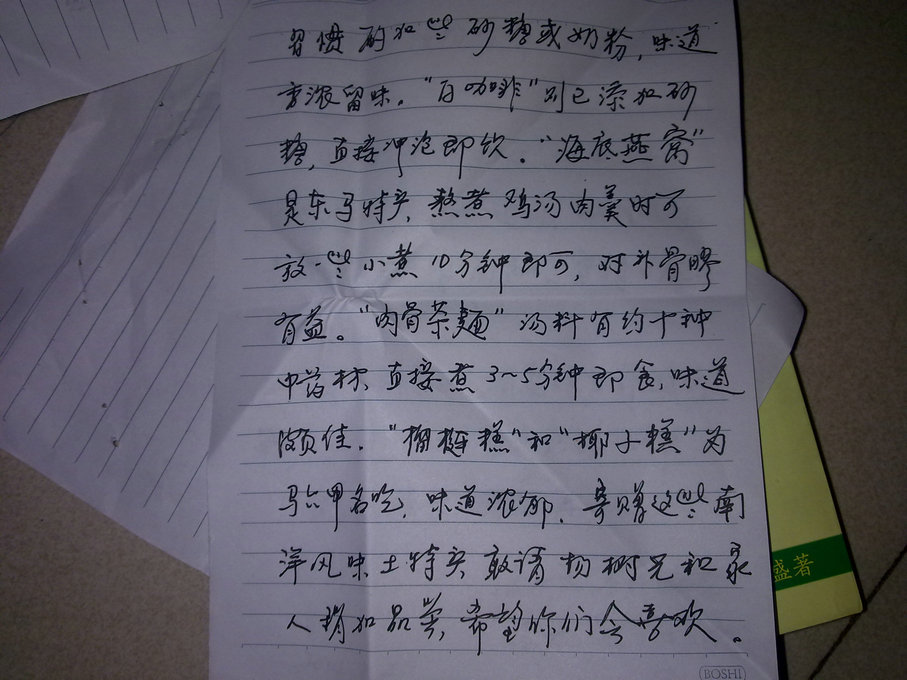 习惯酌加些砂糖或奶粉,味道
香浓留味。"白咖啡"则已添加砂
糖,直接冲泡即饮。"海底燕窝"
是东马特产,熬煮鸡汤肉羹时可
放一些小煮10分钟即可,对补骨膠
有益。"肉骨茶麵"汤料有约十种
中药材,直接煮3~5分钟即食,味道
颇佳。"榴梿糕"和"椰子糕"为
马六甲名吃,味道浓郁。寄赠这些南
洋风味土特产敬请杨树兄和家
人稍加品尝,希望你们会喜欢。
盛著
BOSHI